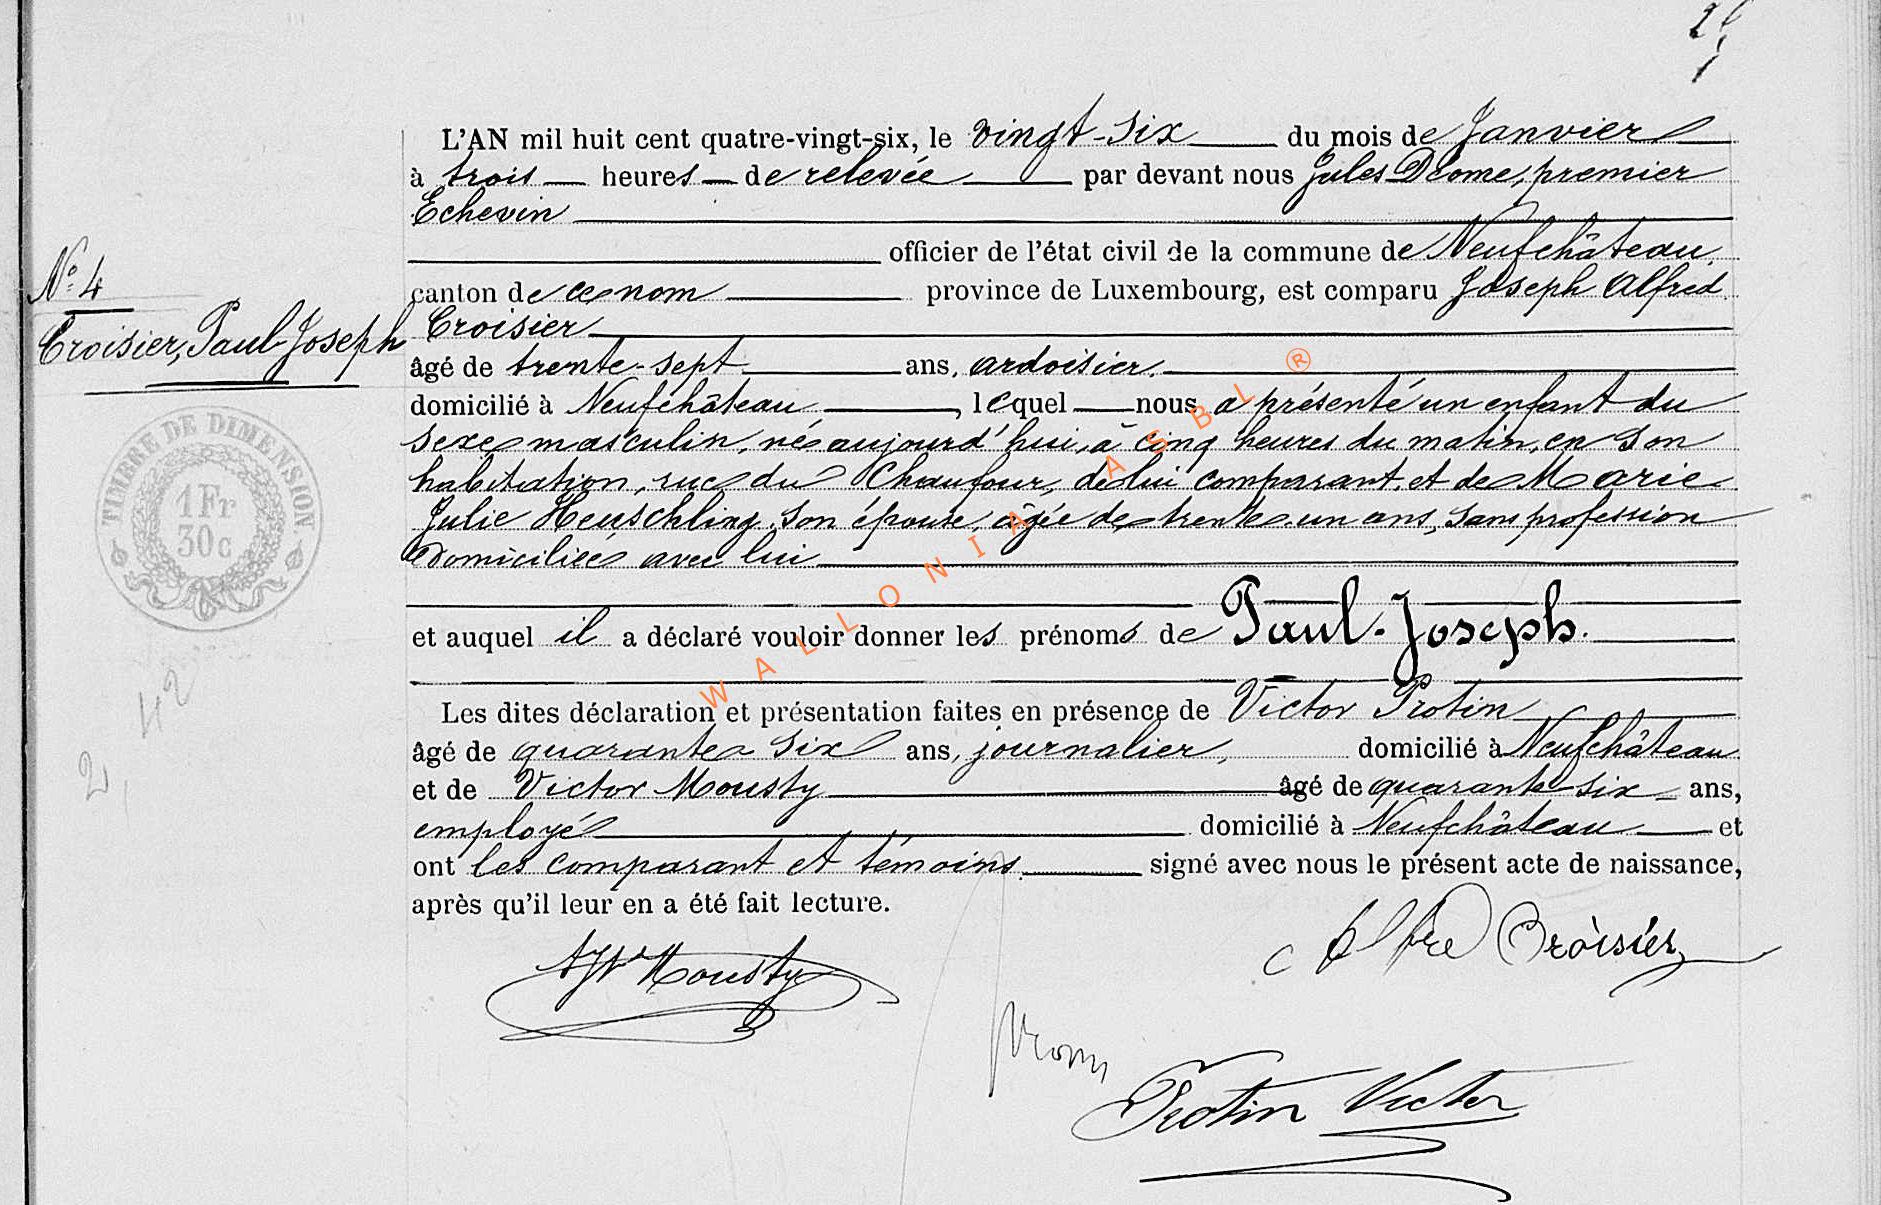 L'AN mil huit cent quatre-vingt-six, le vingt-six du mois de Janvier
à trois heures de relevée par devant nous Jules Déome, premier
Echevin
officier de l'état civil de la commune de Neufchâteau,
N.° 4
canton de ce nom province de Luxembourg, est comparu Joseph Alfred
Croisier, Paul-Joseph
Croisier
âgé de trente-sept ans, ardoisier,
domicilié à Neufchâteau, lequel nous a présenté un enfant du
sexe masculin, né aujourd'hui, à cinq heures du matin, en son
TIMBRE DE DIMENSION
1 Fr
30 c
habitation, rue du Chaufour, de lui comparant, et de Marie
Julie Heuschling, son épouse, âgée de trente-un ans, sans profession
domiciliée avec lui
et auquel il a déclaré vouloir donner les prénoms de Paul-Joseph.
42
Les dites déclaration et présentation faites en présence de Victor Protin
âgé de quarante six ans, journalier, domicilié à Neufchâteau
2,
et de Victor Mousty âgé de quarante-six ans,
employé domicilié à Neufchâteau et
ont les comparant et témoins signé avec nous le présent acte de naissance,
après qu'il leur en a été fait lecture.
Mousty
Alfre Croisier
Protin Victor
WALLONIA ASBL ®